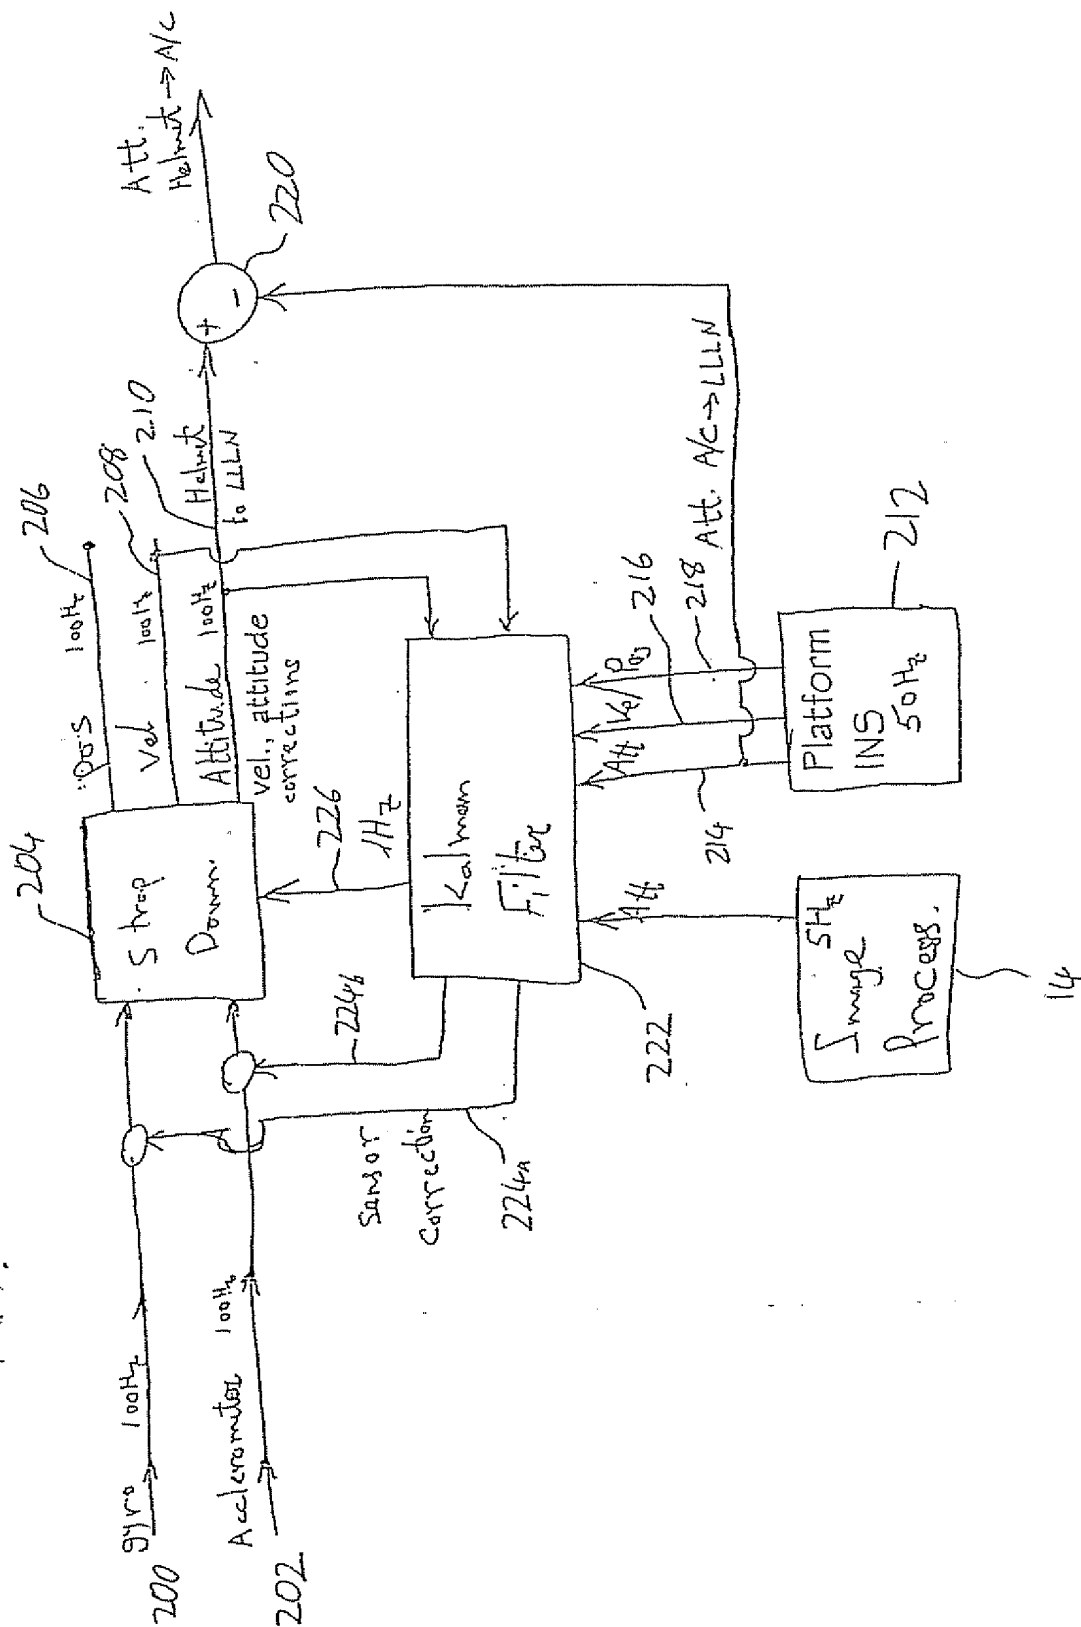 gyro 100Hz
200
Acclerometer 100Hz
202
204
Strap
Down
Pos 100Hz
206
Vel 100Hz
208
Attitude 100Hz
210
Helmet
to LLLN
+
-
220
Att.
Helmet → A/C
vel., attitude
corrections
226
1Hz
224b
Sensor
Correction
224a
Kalman
Filter
222
Att
Att
Pos
214
216
218
Att. A/C → LLLN
Platform
INS
50Hz
212
5Hz
Image
Process.
14